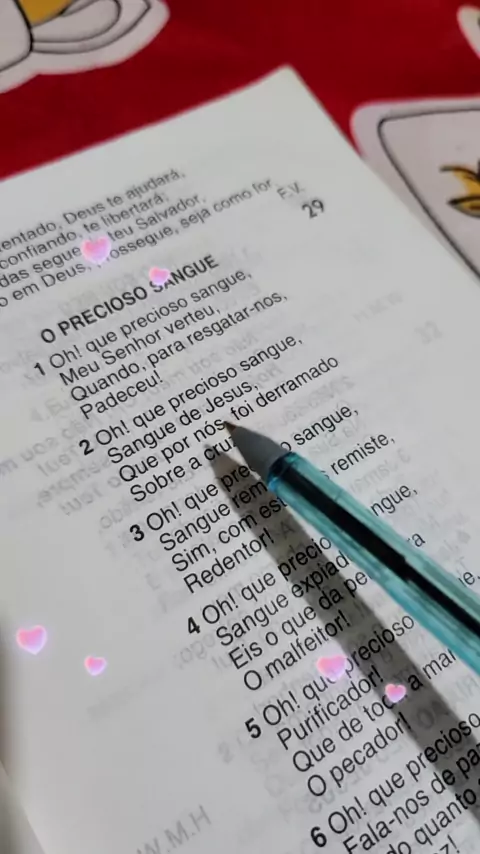 entado, Deus te ajudará,
confiando, te libertará;
das segue teu Salvador,
o em Deus, ossegue, seja como for
F.V.
29
O PRECIOSO SANGUE
1 Oh! que precioso sangue,
Meu Senhor verteu,
Quando, para resgatar-nos,
Padeceu!
2 Oh! que precioso sangue,
Sangue de Jesus,
Que por nós, foi derramado
Sobre a cru
3 Oh! que pre o sangue,
Sangue rem
Sim, com es remiste,
Redentor!
4 Oh! que precio ngue,
Sangue expiad
Eis o que da pe ra
O malfeitor!
5 Oh! que precioso
Purificador!
Que de to a ma
O pecador!
6 Oh! que precioso
Fala-nos de pa
do quanto
z!
H.M.W